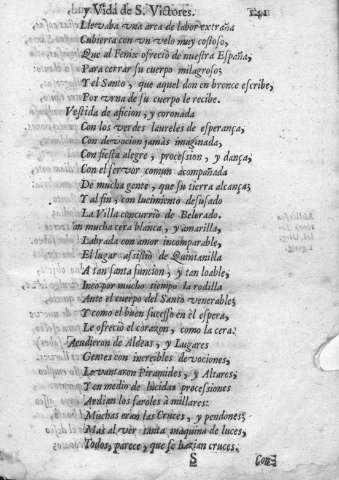 y Vida de S. Victores.
Llevaba vna arca de labor extraña
Cubierta con vn velo muy costoso,
Que al Fenix ofreciò de nuestra España,
Para cerrar su cuerpo milagroso;
Y el Santo, que aquel don en bronce escribe,
Por vrna de su cuerpo le recibe.
Vestida de aficion, y coronada
Con los verdes laureles de esperança,
Con devocion jamàs imaginada,
Con fiesta alegre, procession, y dança,
Con el fervor comun acompañada
De mucha gente, que su tierra alcança;
Y al fin, con lucimiento desusado
La Villa concurriò de Belorado.
on mucha cera blanca, y amarilla,
Labrada con amor incomparable,
El lugar assistiò de Quintanilla
A tan santa funcion, y tan loable,
Inco por mucho tiempo la rodilla
Ante el cuerpo del Santo venerable;
Y como el buen sucesso en èl espera,
Le ofreciò el corazon, como la cera.
Acudieron de Aldeas, y Lugares
Gentes con increibles devociones,
Levantaron Piramides, y Altares;
Y en medio de lùcidas processiones
Ardian los faroles à millares:
Muchas eran las Cruces, y pendones;
Mas al ver tanta maquina de luces,
Todos, parece, que se hazian cruces.
S
Con